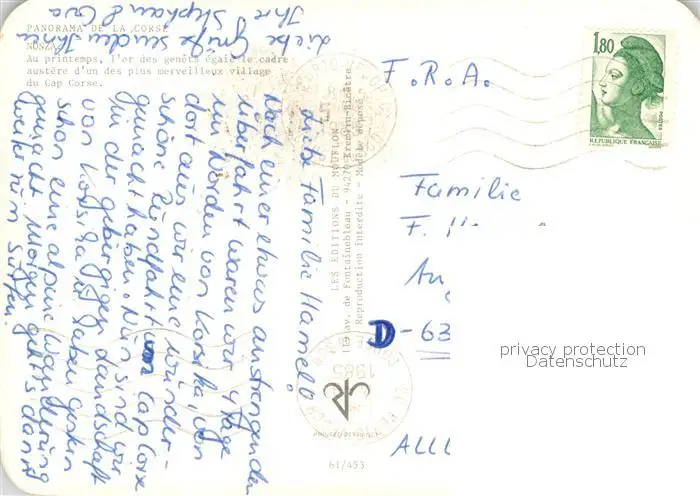 PANORAMA DE LA CORSE
NONZA
Au printemps, l'or des genêts égaie le cadre
austère d'un des plus merveilleux village
du Cap Corse.
Liebe Familie Hamel!
Nach einer etwas anstrengenden
Überfahrt waren wir 4 Tage
im Norden von Korsika, von
dort aus wir eine wunder-
schöne Rundfahrt vom Cap Corse
gemacht haben. Nun sind wir
in der gebirgigen Landschaft
von Korsika und haben gestern
schon eine alpine Wanderung
gemacht. Morgen geht's dann
weiter zum Süden.
Liebe Grüße senden Ihnen
Ihre Stephan & Eva
LES EDITIONS DU MOUFLON
av. de Fontainebleau - 94270 Kremlin-Bicêtre
Reproduction interdite - Modèle déposé
1985
61/453
1,80
POSTES
REPUBLIQUE FRANÇAISE
F.R.A.
Familie
F. H
An
D-63
ALL
privacy protection
Datenschutz